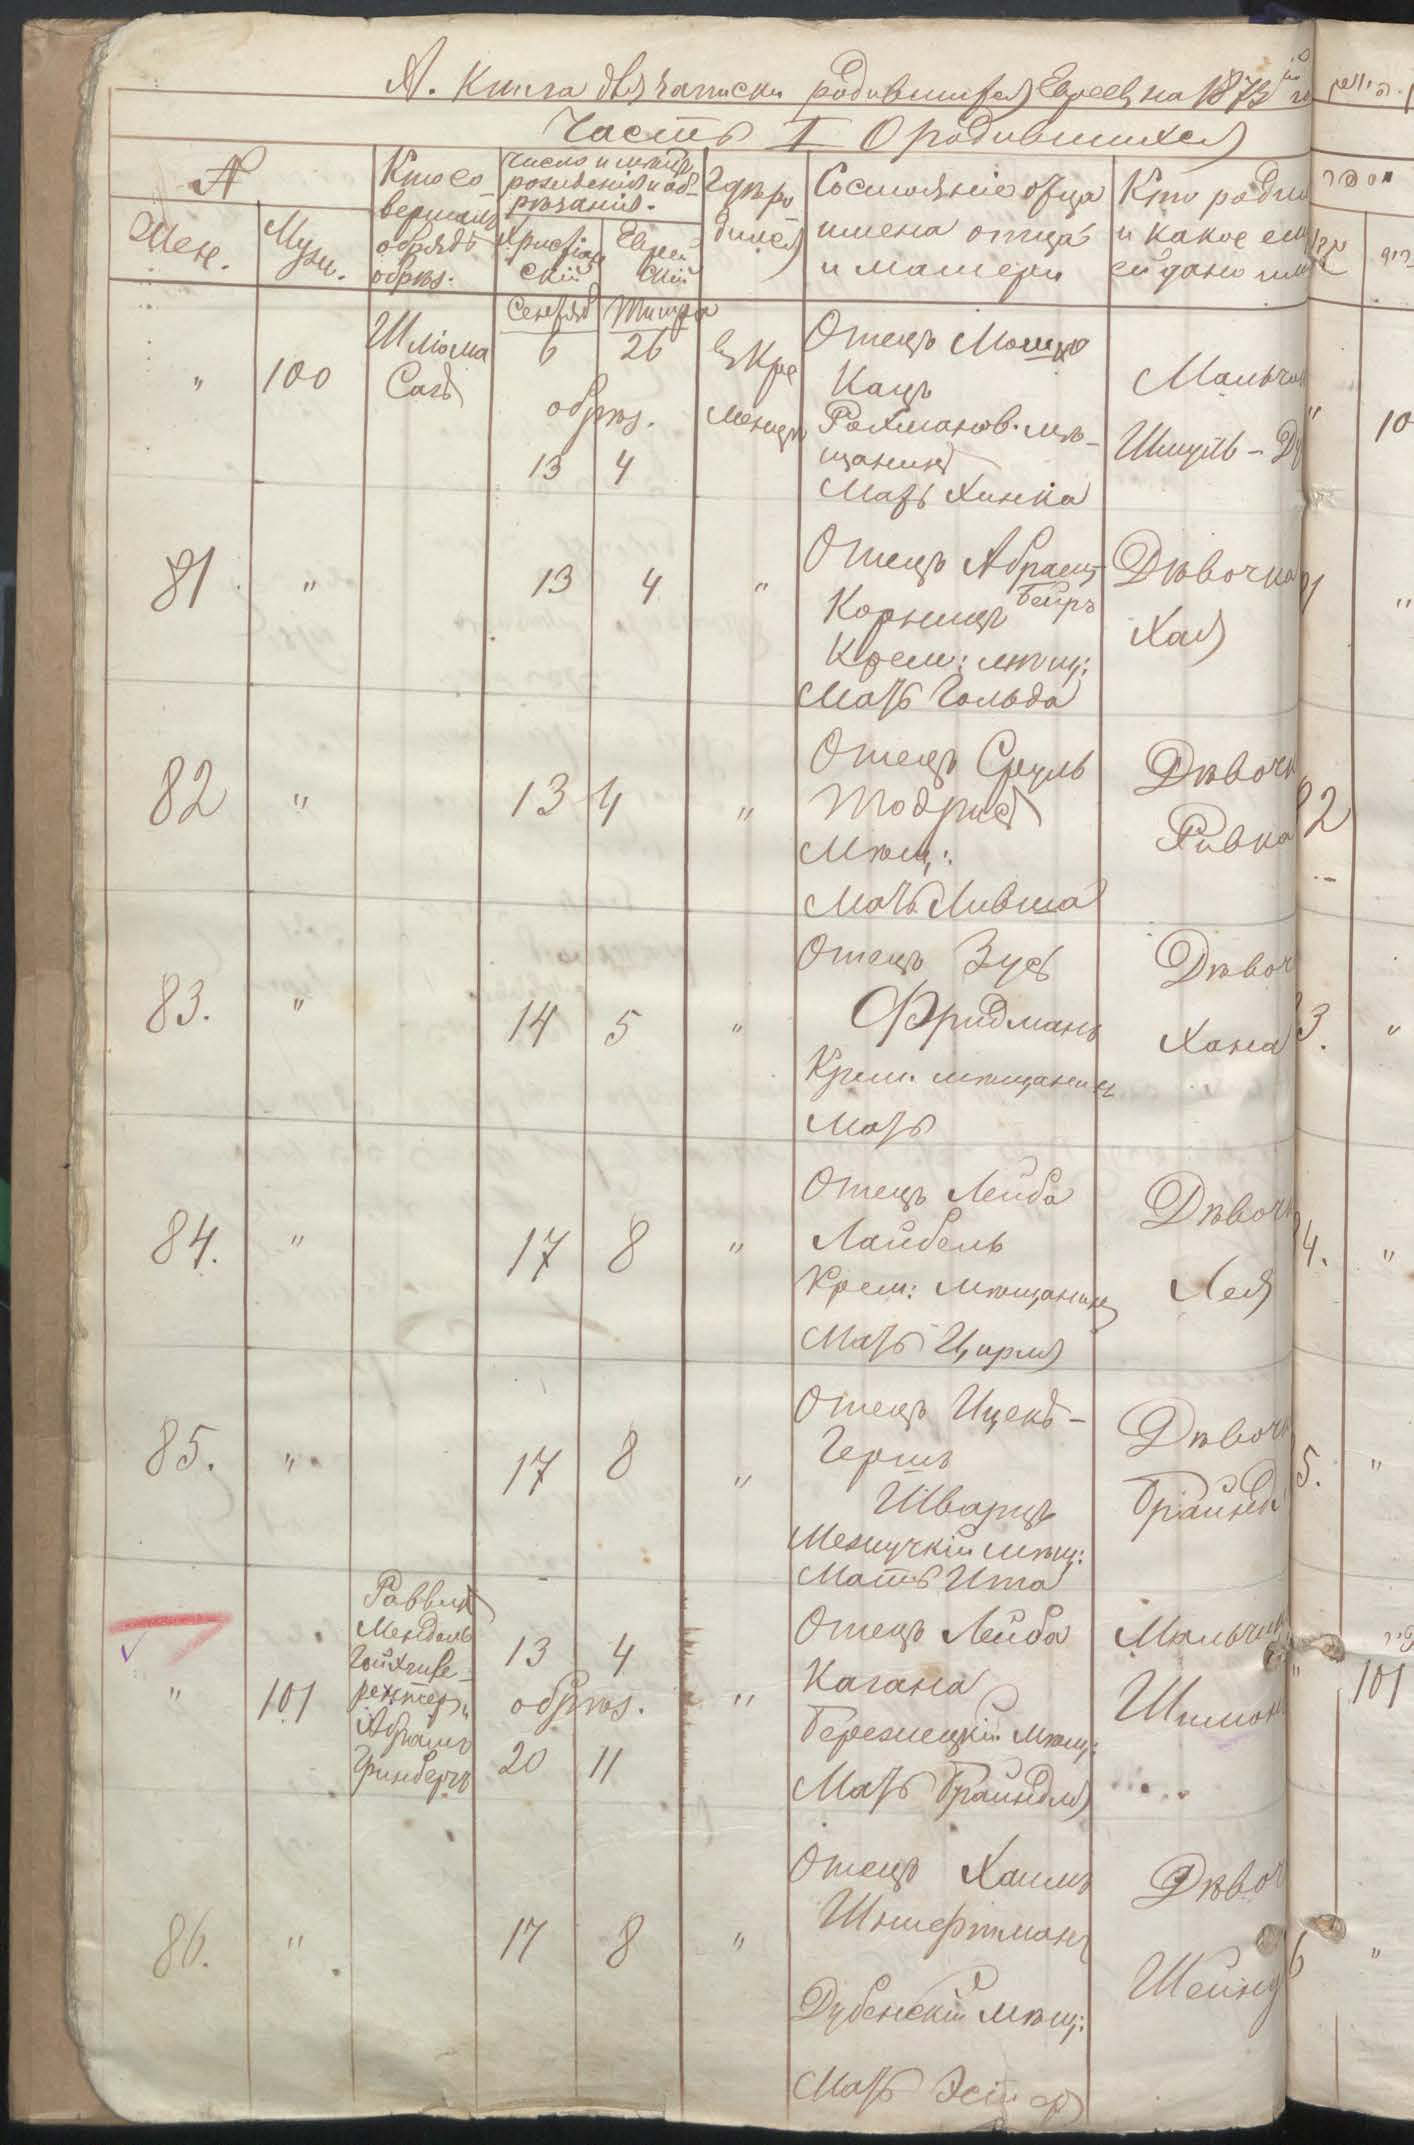 А. Книга для записки родившихся Евреевъ на 1873 го
Часть I О родившихся
№
Жен.
Муж.
Кто со
вершалъ
обрядъ
обрѣз.
Число и мѣсяцъ
рожденія и об-
рѣзанія.
Христіан
скій
Еврей
скій
Гдѣ ро
дился
Состояніе отца
имена отца
и матери
Кто родил
и какое ему
ей дано им
Сентябр Тишри
" 100
Шліома
Сасъ
6 26
обрѣз.
13 4
въ Кре
менцѣ
Отецъ Мошко
Кацъ
Рахманов. мѣ-
щанинъ
Мать Хинка
Мальчи
Шмуль - Д
81 "
13 4
"
Отецъ Абрамъ-
Беиръ
Корницъ
Крем: мѣщ:
Мать Гольда
Дѣвочка
Хая
82 "
13 4
"
Отецъ Сруль
Тодрисъ
Мѣщ:
Мать Ливша
Дѣвочк
Ривка
83. "
14 5
"
Отецъ Зусъ
Фридманъ
Крем. мѣщанинъ
Мать
Дѣвоч
Хана
84. "
17 8
"
Отецъ Лейба
Лайбель
Крем: мѣщанинъ
Мать Цирля
Дѣвочк
Лея
85. "
17 8
"
Отецъ Ицекъ-
Гершъ
Шварцъ
мѣщ:
Мать Ита
Дѣвоч
Брайнд
" 101
Раввинъ
Мендель
Абрамъ
Гринбергъ
13 4
обрѣз.
20 11
"
Отецъ Лейба
Кагана
Бережецкій мѣщ:
Мать Брайндля
Мальчик
Шимон
86. "
17 8
"
Отецъ Хаимъ
Шнифтманъ
Дубенскій мѣщ:
Мать Эстер
Дѣвоч
Шейнд
10
"
2
3. "
4. "
5. "
101
6 "